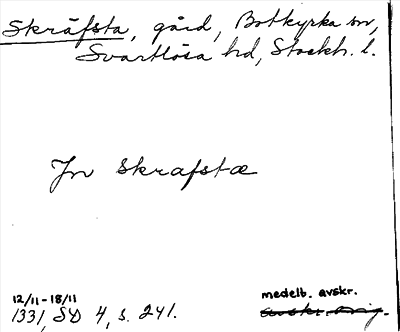 Skräfsta, gård, Botkyrka sn,
Svartlösa hd, Stockh. l.
Jn Skrafstæ
12/11-18/11
1331, SD 4, s. 241.
medelb. avskr.
avskr. orig.